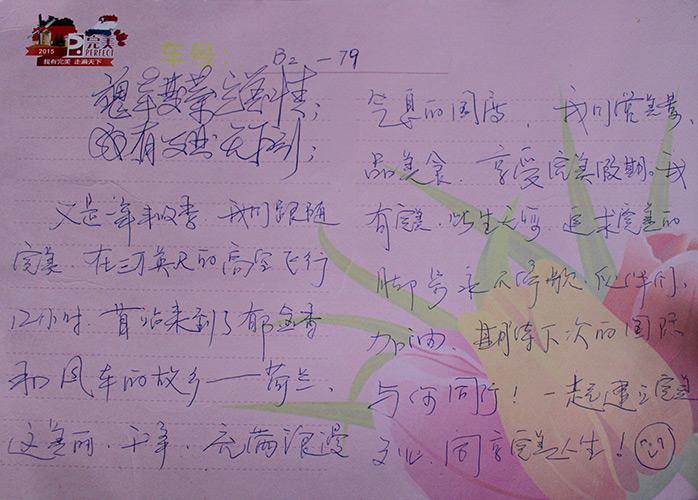 2015
完美
PERFECT
我有完美 走遍天下
车号: B2-79
魂牵梦萦完美情;
我有完美天下行;
又是一年丰收季 我们跟随
完美. 在三万英尺的高空飞行
12小时. 首站来到了郁金香
和风车的故乡——荷兰.
这美丽. 干净. 充满浪漫
气息的国度, 我们赏美景、
品美食. 享受完美假期。我
有完美. 此生无悔. 追求完美的
脚步永不停歇. 伙伴们,
加油. 期待下次的国际
与你同行! 一起建立完美
事业. 同享完美人生!